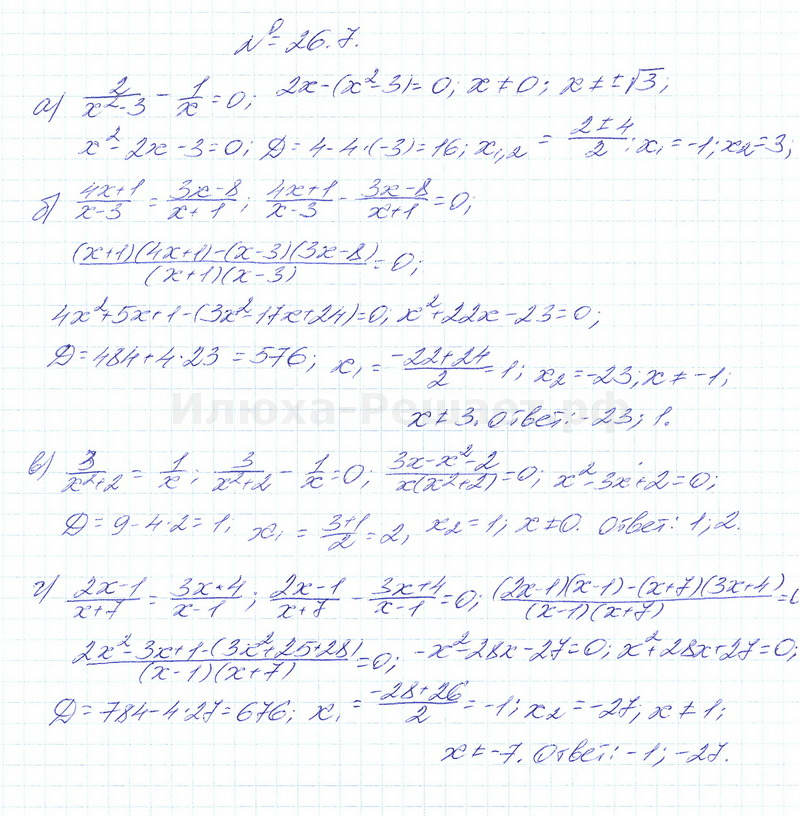 № 26.7.
а) 2/(x²-3) - 1/x = 0; 2x-(x²-3)=0; x≠0; x≠±√3;
x²-2x-3=0; D=4-4·(-3)=16; x₁,₂ = (2±4)/2; x₁=-1; x₂=3;
б) (4x+1)/(x-3) = (3x-8)/(x+1); (4x+1)/(x-3) - (3x-8)/(x+1) = 0;
((x+1)(4x+1)-(x-3)(3x-8))/((x+1)(x-3)) = 0;
4x²+5x+1-(3x²-17x+24)=0; x²+22x-23=0;
D=484+4·23=576; x₁ = (-22+24)/2 = 1; x₂=-23; x≠-1;
x≠3. Ответ: -23; 1.
Илюха-Решает.рф
в) 3/(x²+2) = 1/x; 3/(x²+2) - 1/x = 0; (3x-x²-2)/(x(x²+2)) = 0; x²-3x+2=0;
D=9-4·2=1; x₁ = (3+1)/2 = 2, x₂=1; x≠0. Ответ: 1; 2.
г) (2x-1)/(x+7) = (3x+4)/(x-1); (2x-1)/(x+7) - (3x+4)/(x-1) = 0; ((2x-1)(x-1)-(x+7)(3x+4))/((x-1)(x+7)) = 0
(2x²-3x+1-(3x²+25+28))/((x-1)(x+7)) = 0; -x²-28x-27=0; x²+28x+27=0;
D=784-4·27=676; x₁ = (-28+26)/2 = -1; x₂=-27, x≠1;
x≠-7. Ответ: -1; -27.